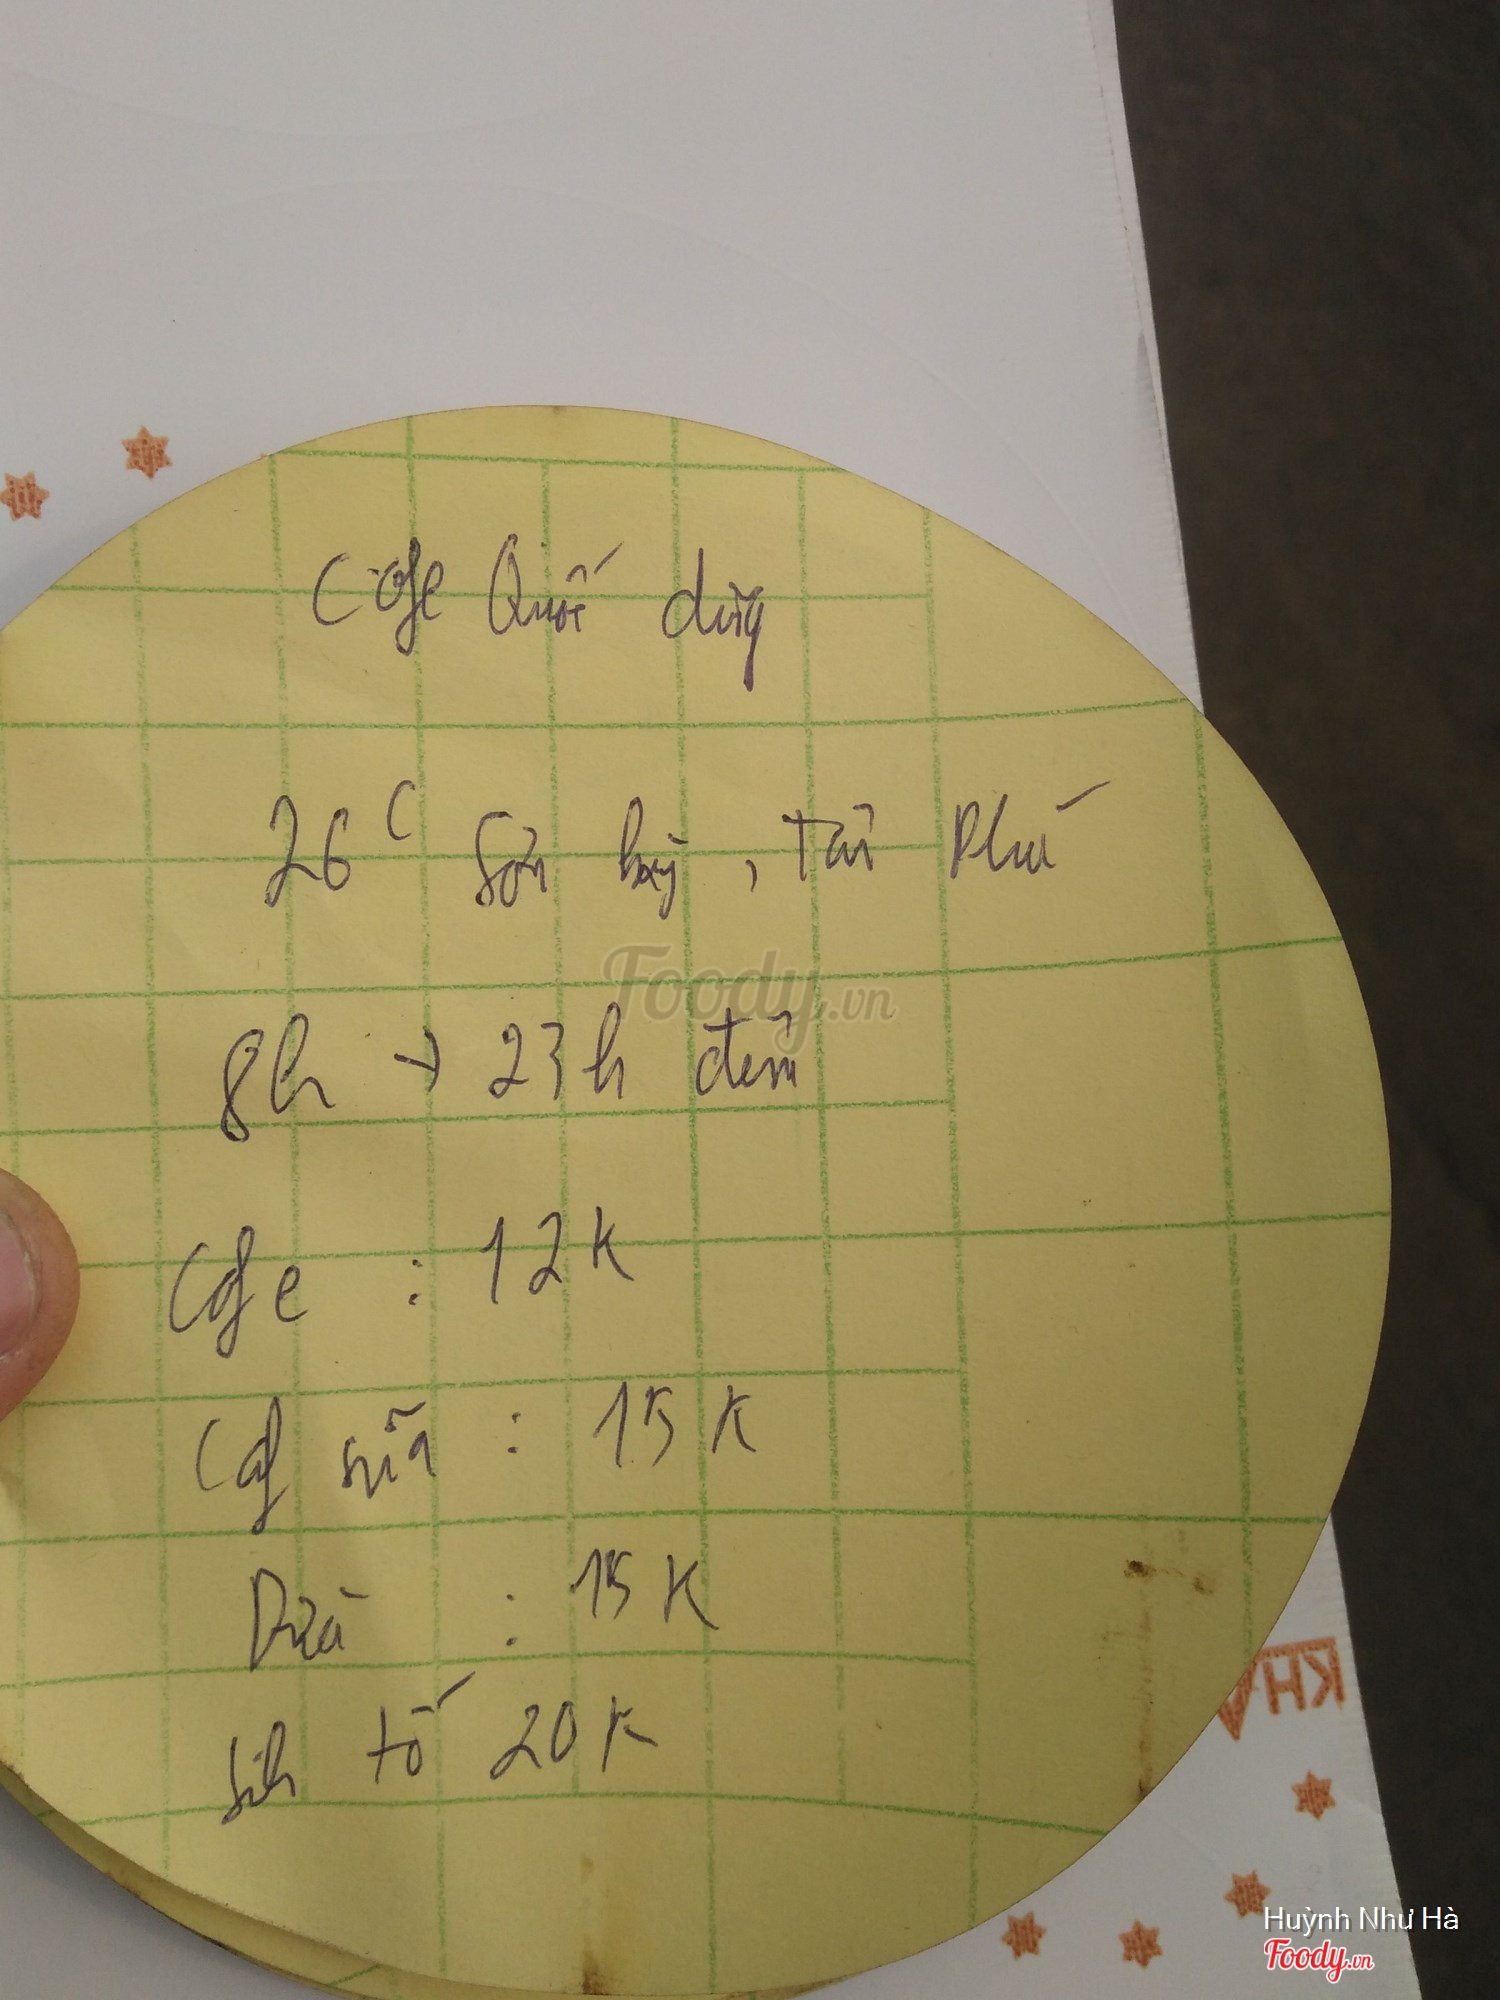 Cafe Quốc dũng
26C Sơn kỳ, Tân Phú
8h → 23h đêm
Cafe : 12k
Caf sữa : 15k
Dừa : 15k
Sinh tố 20k
Foody.vn
KH
Huỳnh Như Hà
Foody.vn